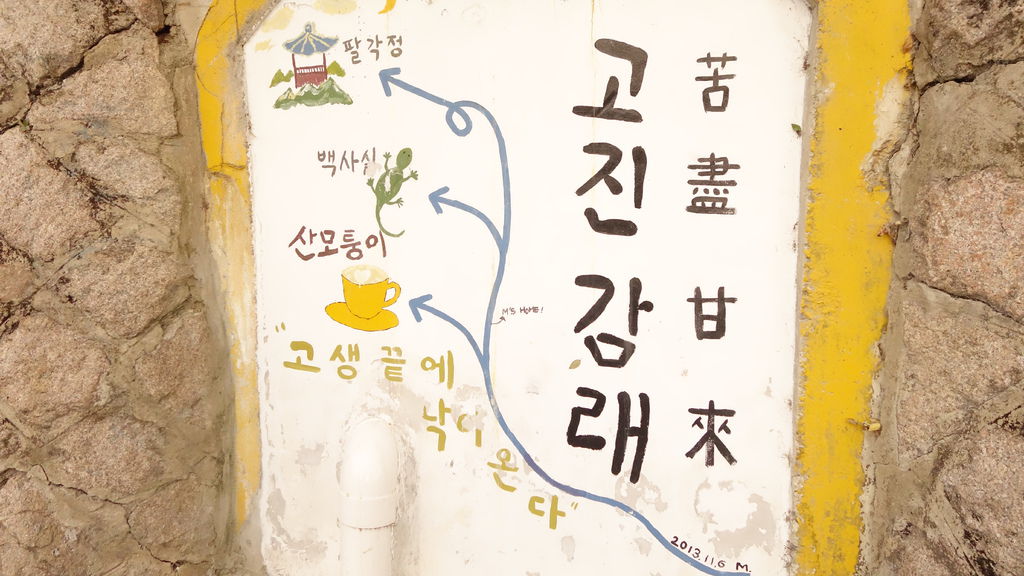 팔각정
백사실
산모퉁이
M'S HOME!
"고생 끝에
낙이
온
다"
고진감래
苦盡甘來
2013.11.6 M.